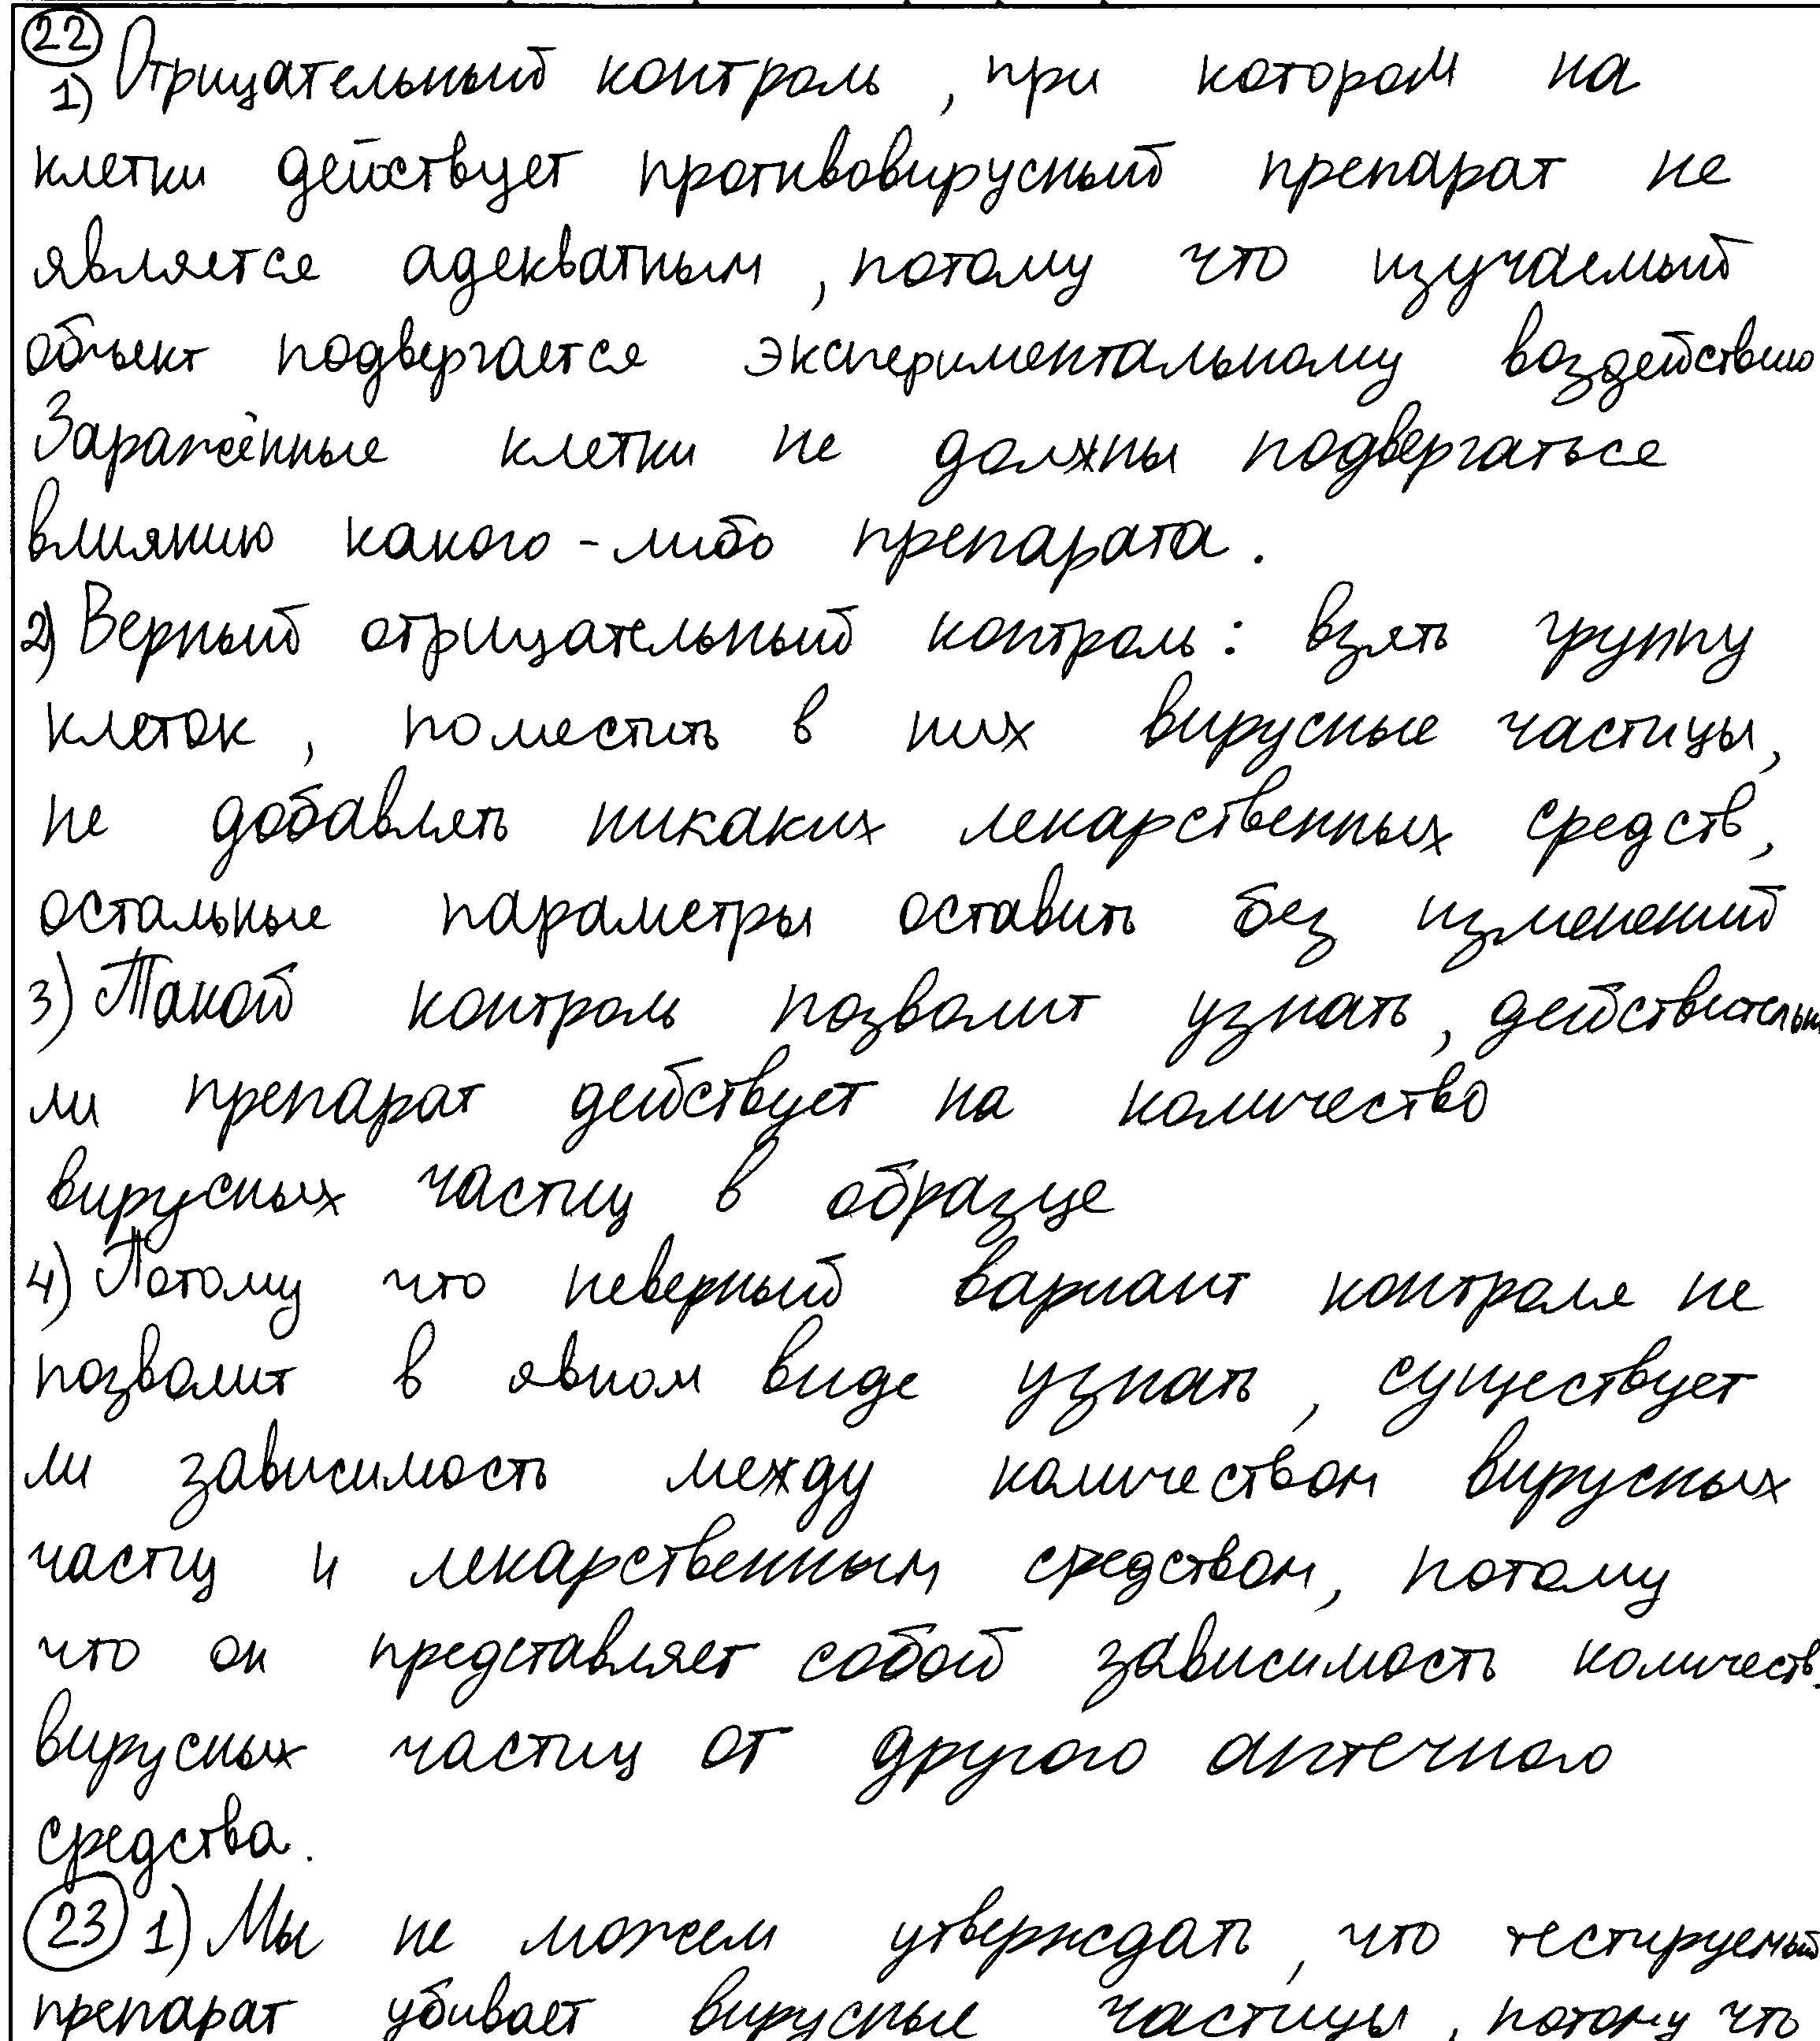 22
1) Отрицательный контроль, при котором на
клетки действует противовирусный препарат не
является адекватным, потому что изучаемый
объект подвергается экспериментальному воздействию
Заражённые клетки не должны подвергаться
влиянию какого-либо препарата.
2) Верный отрицательный контроль: взять группу
клеток, поместить в них вирусные частицы,
не добавлять никаких лекарственных средств,
остальные параметры оставить без изменений
3) Такой контроль позволит узнать, действительн
ли препарат действует на количество
вирусных частиц в образце
4) Потому что неверный вариант контроля не
позволит в явном виде узнать, существует
ли зависимость между количеством вирусных
частиц и лекарственным средством, потому
что он представляет собой зависимость количеств
вирусных частиц от другого аптечного
средства.
23 1) Мы не можем утверждать, что тестируемый
препарат убивает вирусные частицы, потому что